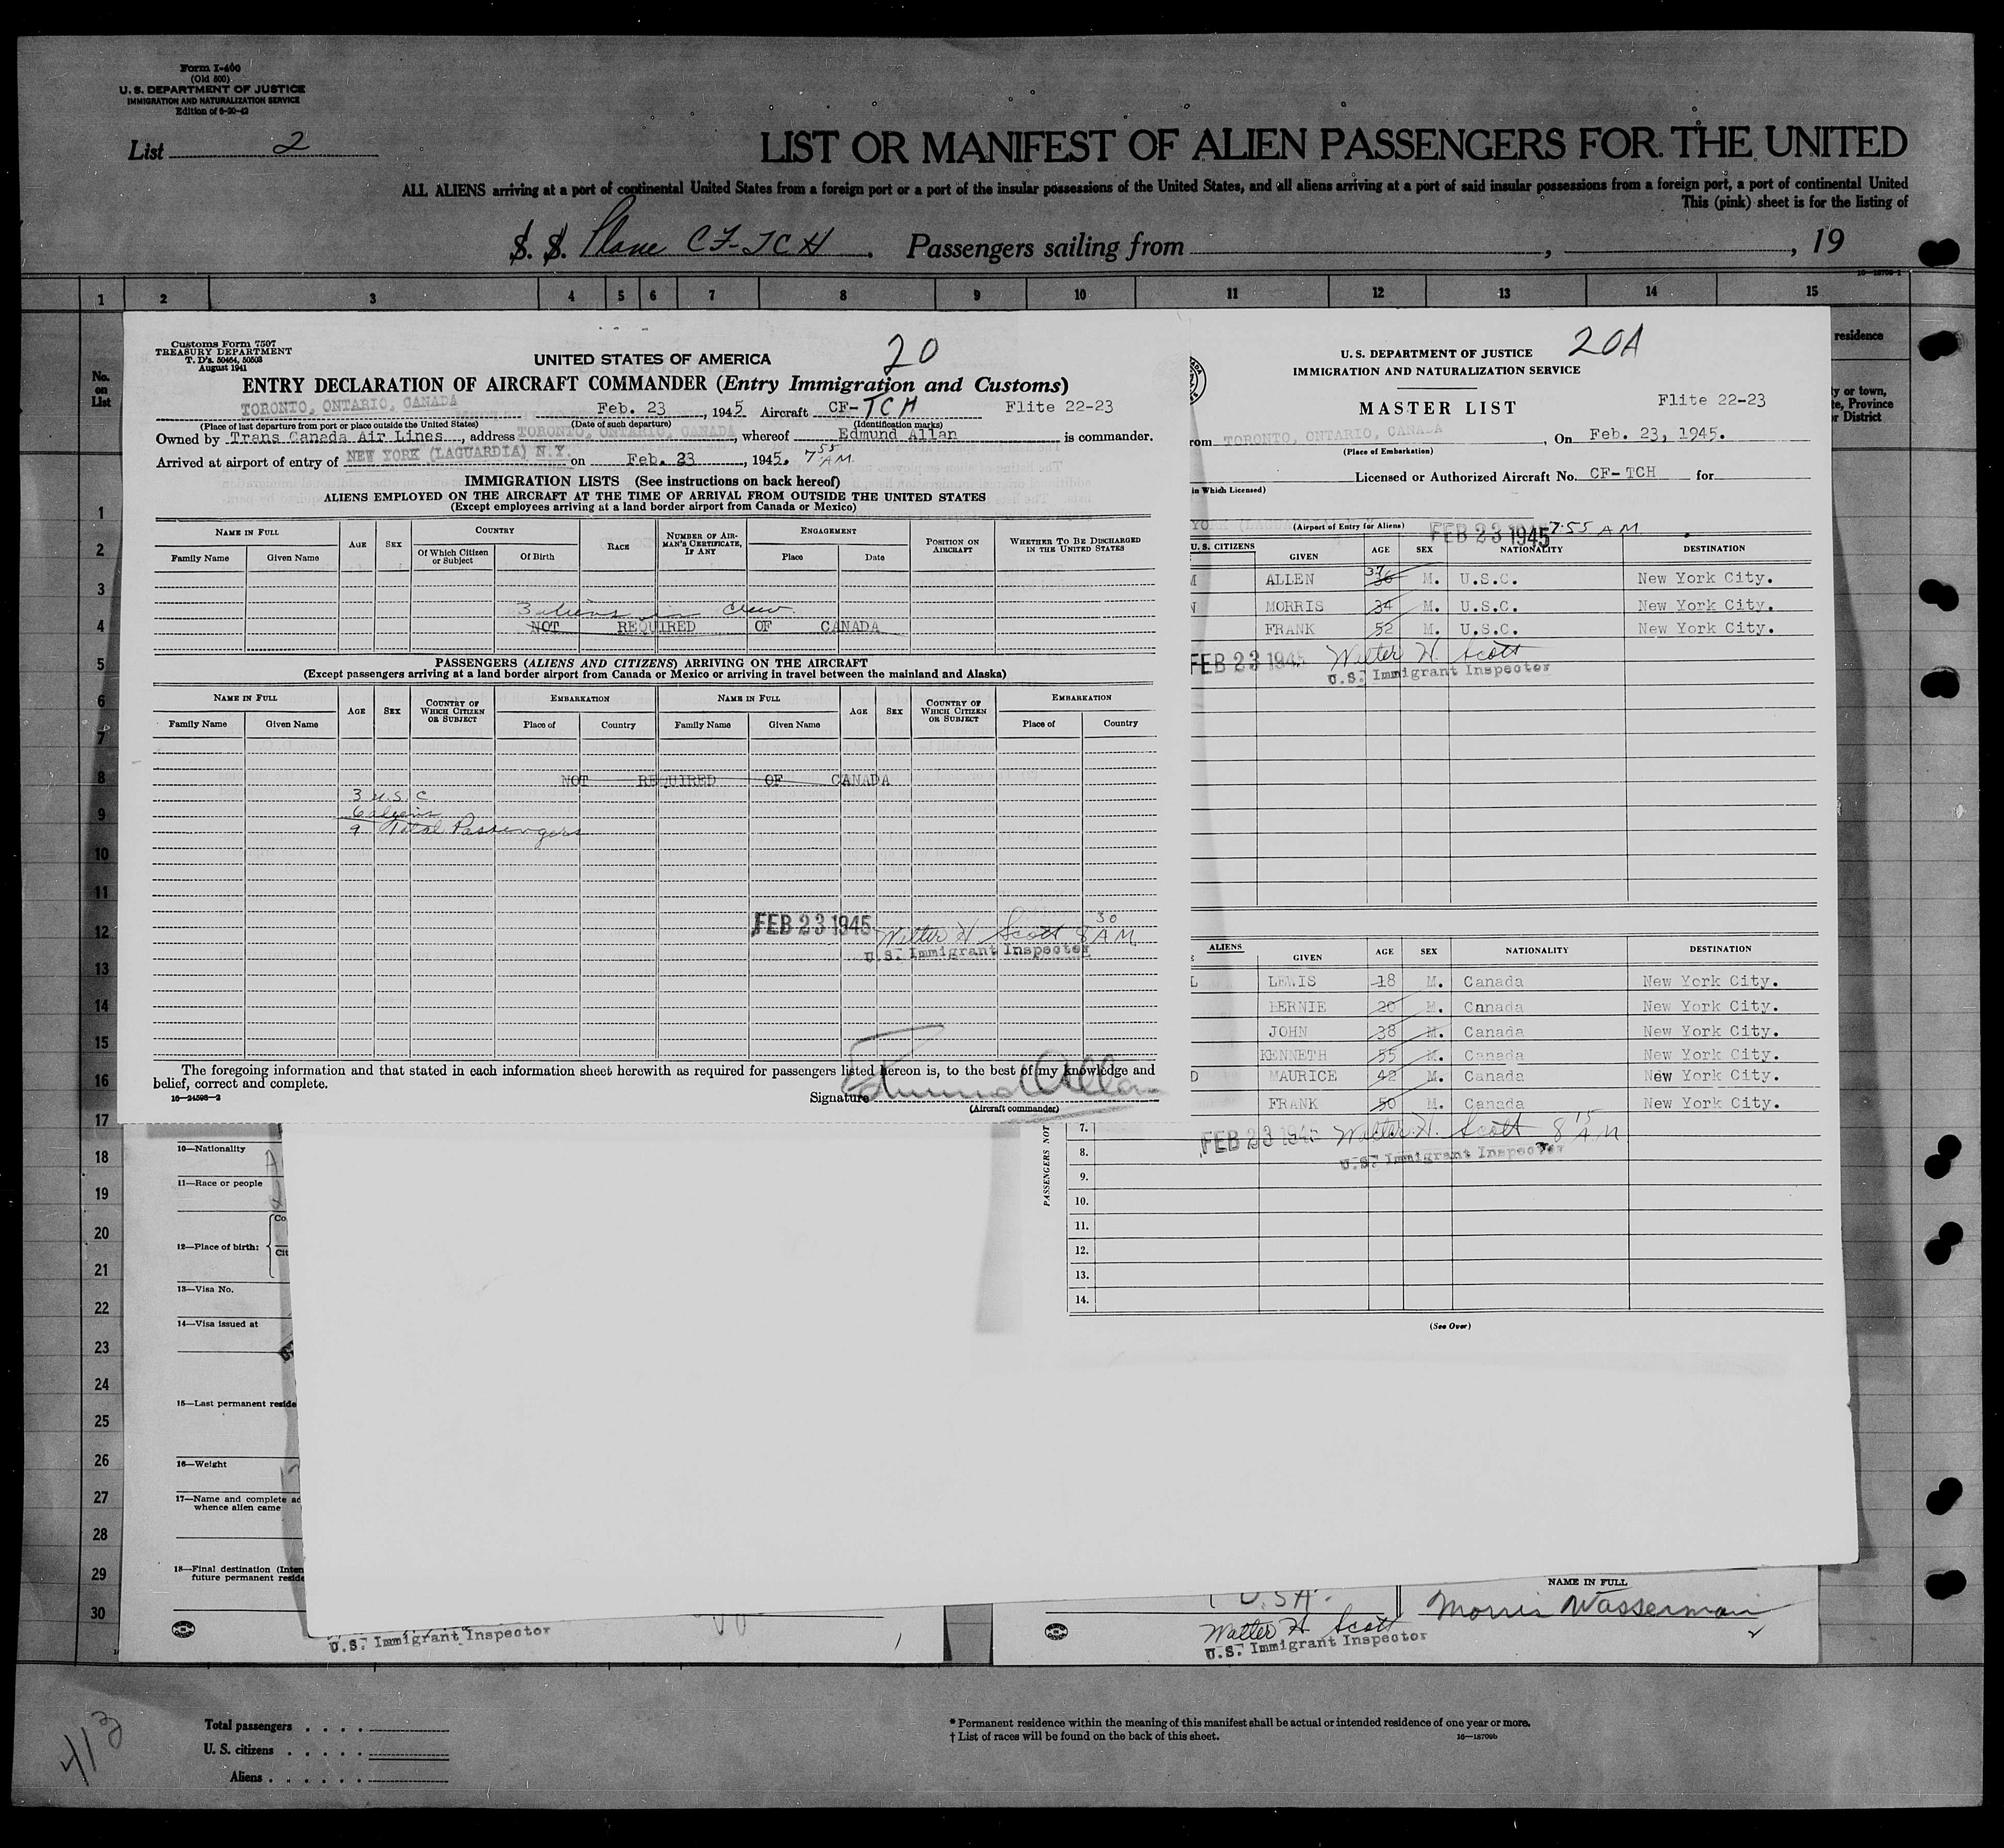 Form I-400
(Old 500)
U. S. DEPARTMENT OF JUSTICE
IMMIGRATION AND NATURALIZATION SERVICE
Edition of 6-20-42
List 2
LIST OR MANIFEST OF ALIEN PASSENGERS FOR THE UNITED
ALL ALIENS arriving at a port of continental United States from a foreign port or a port of the insular possessions of the United States, and all aliens arriving at a port of said insular possessions from a foreign port, a port of continental United
This (pink) sheet is for the listing of
S. S. Plane CF-TCH. Passengers sailing from , , 19
1 2 3 4 5 6 7 8 9 10 11 12 13 14 15
No. on List
residence
y or town,
te, Province
r District
1
2
3
4
5
6
7
8
9
10
11
12
13
14
15
16
17
18
19
20
21
22
23
24
25
26
27
28
29
30
Customs Form 7507
TREASURY DEPARTMENT
T. D's. 50464, 50503
August 1941
20
UNITED STATES OF AMERICA
ENTRY DECLARATION OF AIRCRAFT COMMANDER (Entry Immigration and Customs)
TORONTO, ONTARIO, CANADA Feb. 23, 1945 Aircraft CF-TCH Flite 22-23
(Place of last departure from port or place outside the United States) (Date of such departure) (Identification marks)
Owned by Trans Canada Air Lines, address TORONTO, ONTARIO, CANADA, whereof Edmund Allan is commander.
Arrived at airport of entry of NEW YORK (LAGUARDIA) N.Y. on Feb. 23, 1945. 7 55 AM
IMMIGRATION LISTS (See instructions on back hereof)
ALIENS EMPLOYED ON THE AIRCRAFT AT THE TIME OF ARRIVAL FROM OUTSIDE THE UNITED STATES
(Except employees arriving at a land border airport from Canada or Mexico)
NAME IN FULL AGE SEX COUNTRY RACE NUMBER OF AIRMAN'S CERTIFICATE, IF ANY ENGAGEMENT POSITION ON AIRCRAFT WHETHER TO BE DISCHARGED IN THE UNITED STATES
Family Name Given Name Of Which Citizen or Subject Of Birth Place Date
3 aliens in crew
NOT REQUIRED OF CANADA
PASSENGERS (ALIENS AND CITIZENS) ARRIVING ON THE AIRCRAFT
(Except passengers arriving at a land border airport from Canada or Mexico or arriving in travel between the mainland and Alaska)
NAME IN FULL AGE SEX COUNTRY OF WHICH CITIZEN OR SUBJECT EMBARKATION NAME IN FULL AGE SEX COUNTRY OF WHICH CITIZEN OR SUBJECT EMBARKATION
Family Name Given Name Place of Country Family Name Given Name Place of Country
NOT REQUIRED OF CANADA
3 U.S.C
6 aliens
9 Total Passengers
FEB 23 1945 Walter H Scott 8 30 AM
U.S. Immigrant Inspector
The foregoing information and that stated in each information sheet herewith as required for passengers listed hereon is, to the best of my knowledge and
belief, correct and complete.
Signature Edmund Allan
16-24598-2
(Aircraft commander)
20A
U. S. DEPARTMENT OF JUSTICE
IMMIGRATION AND NATURALIZATION SERVICE
MASTER LIST
Flite 22-23
rom TORONTO, ONTARIO, CANADA, On Feb. 23, 1945.
(Place of Embarkation)
Licensed or Authorized Aircraft No. CF-TCH for
in Which Licensed)
YORK (LAGUARDIA)
(Airport of Entry for Aliens) FEB 23 1945 7:55 AM
U.S. CITIZENS GIVEN AGE SEX NATIONALITY DESTINATION
M ALLEN 37 36 M. U.S.C. New York City.
N MORRIS 34 M. U.S.C. New York City.
FRANK 52 M. U.S.C. New York City.
FEB 23 1945 Walter H. Scott
U.S. Immigrant Inspector
ALIENS GIVEN AGE SEX NATIONALITY DESTINATION
L LEWIS 18 M. Canada New York City.
BERNIE 20 M. Canada New York City.
JOHN 38 M. Canada New York City.
KENNETH 55 M. Canada New York City.
D MAURICE 42 M. Canada New York City.
FRANK 50 M. Canada New York City.
FEB 23 1945 Walter H. Scott 8 15 AM
U.S. Immigrant Inspector
PASSENGERS NOT
7.
8.
9.
10.
11.
12.
13.
14.
(See Over)
10—Nationality
11—Race or people
12—Place of birth: Co
Cit
13—Visa No.
14—Visa issued at
15—Last permanent reside
16—Weight
17—Name and complete ad
whence alien came
18—Final destination (Inten
future permanent reside
U.S. Immigrant Inspector
U.S.A.
Walter H Scott
U.S. Immigrant Inspector
NAME IN FULL
Morris Wasserman
413
Total passengers
U. S. citizens
Aliens
* Permanent residence within the meaning of this manifest shall be actual or intended residence of one year or more.
† List of races will be found on the back of this sheet.
16—18709b